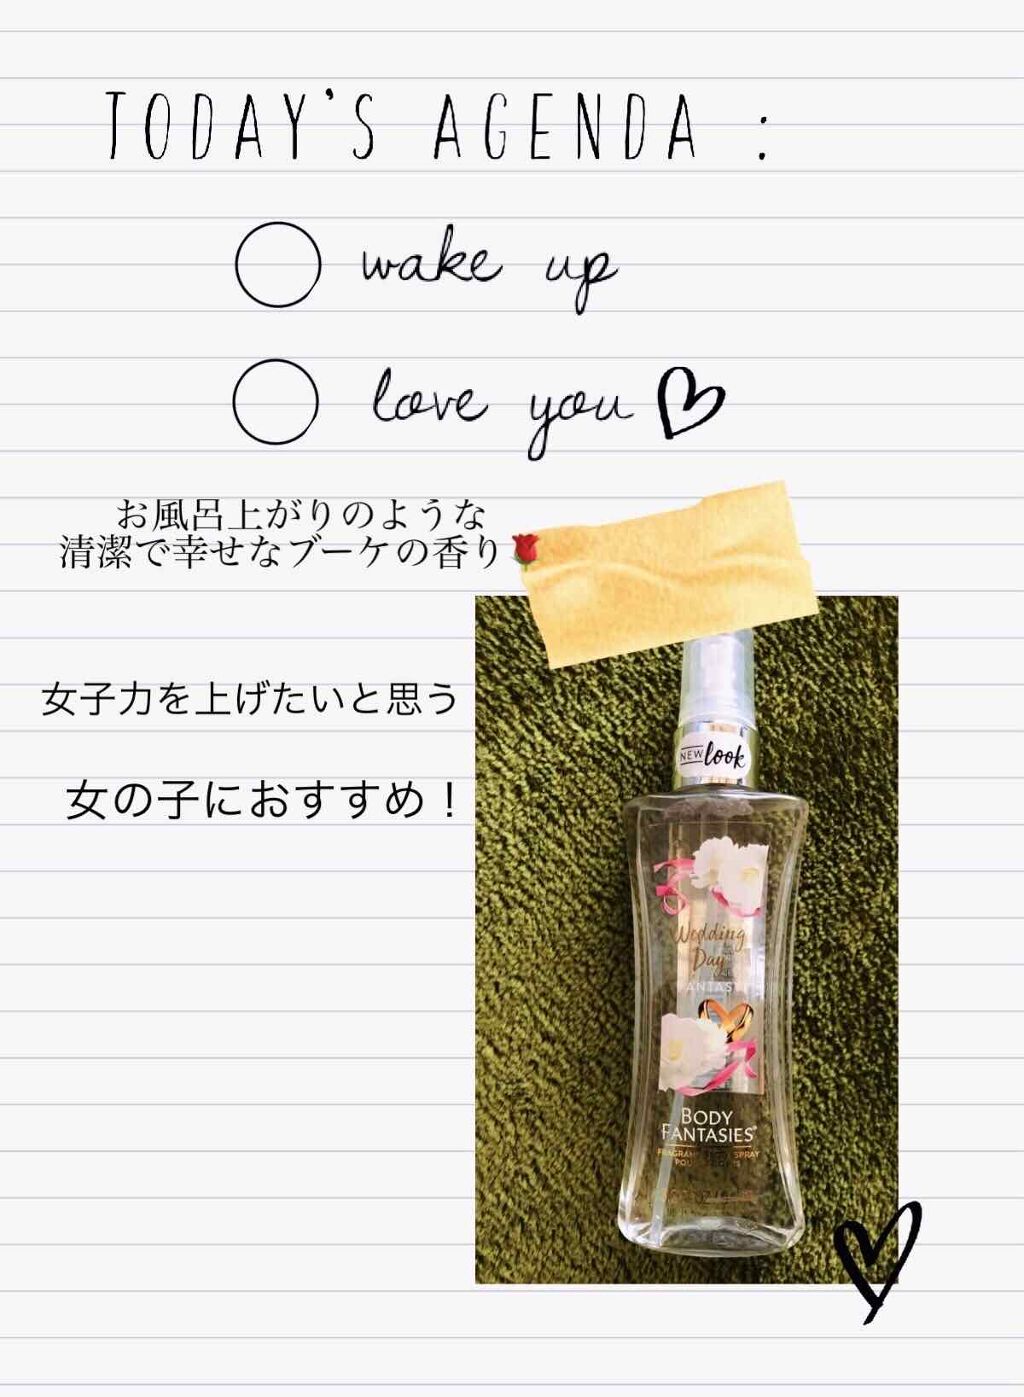 TODAY'S AGENDA :
wake up
love you
お風呂上がりのような
清潔で幸せなブーケの香り
女子力を上げたいと思う
女の子におすすめ！
NEW look
Wedding
Day
FANTASY
BODY
FANTASIES
SPRAY